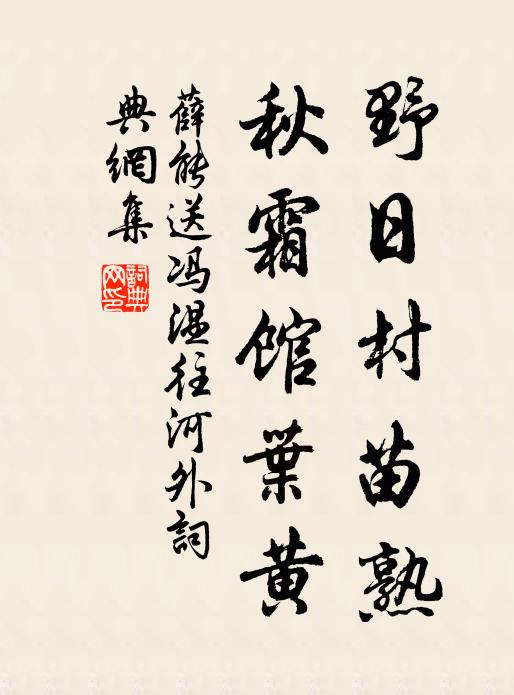 野日村苗熟
秋霜館葉黃
薛能送冯温往河外詞
典網集
詞典
网印